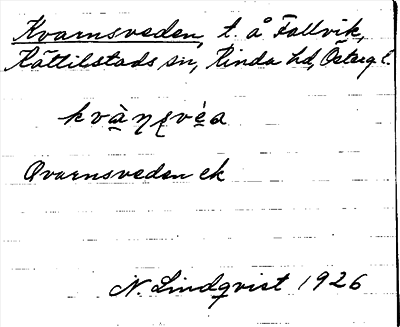 Kvarnsveden, t. å Fallvik,
Kättilstads sn, Kinda hd, Östergl.
Qvarnsveden ek
N. Lindqvist 1926